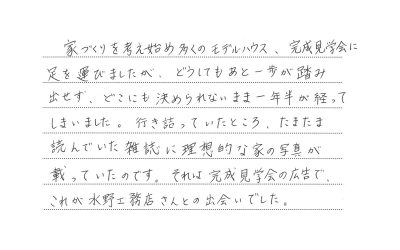 家づくりを考え始め多くのモデルハウス、完成見学会に
足を運びましたが、どうしてもあと一歩が踏み
出せず、どこにも決められないまま一年半が経って
しまいました。行き詰っていたところ、たまたま
読んでいた雑誌に理想的な家の写真が
載っていたのです。それは完成見学会の広告で、
これが水野工務店さんとの出会いでした。